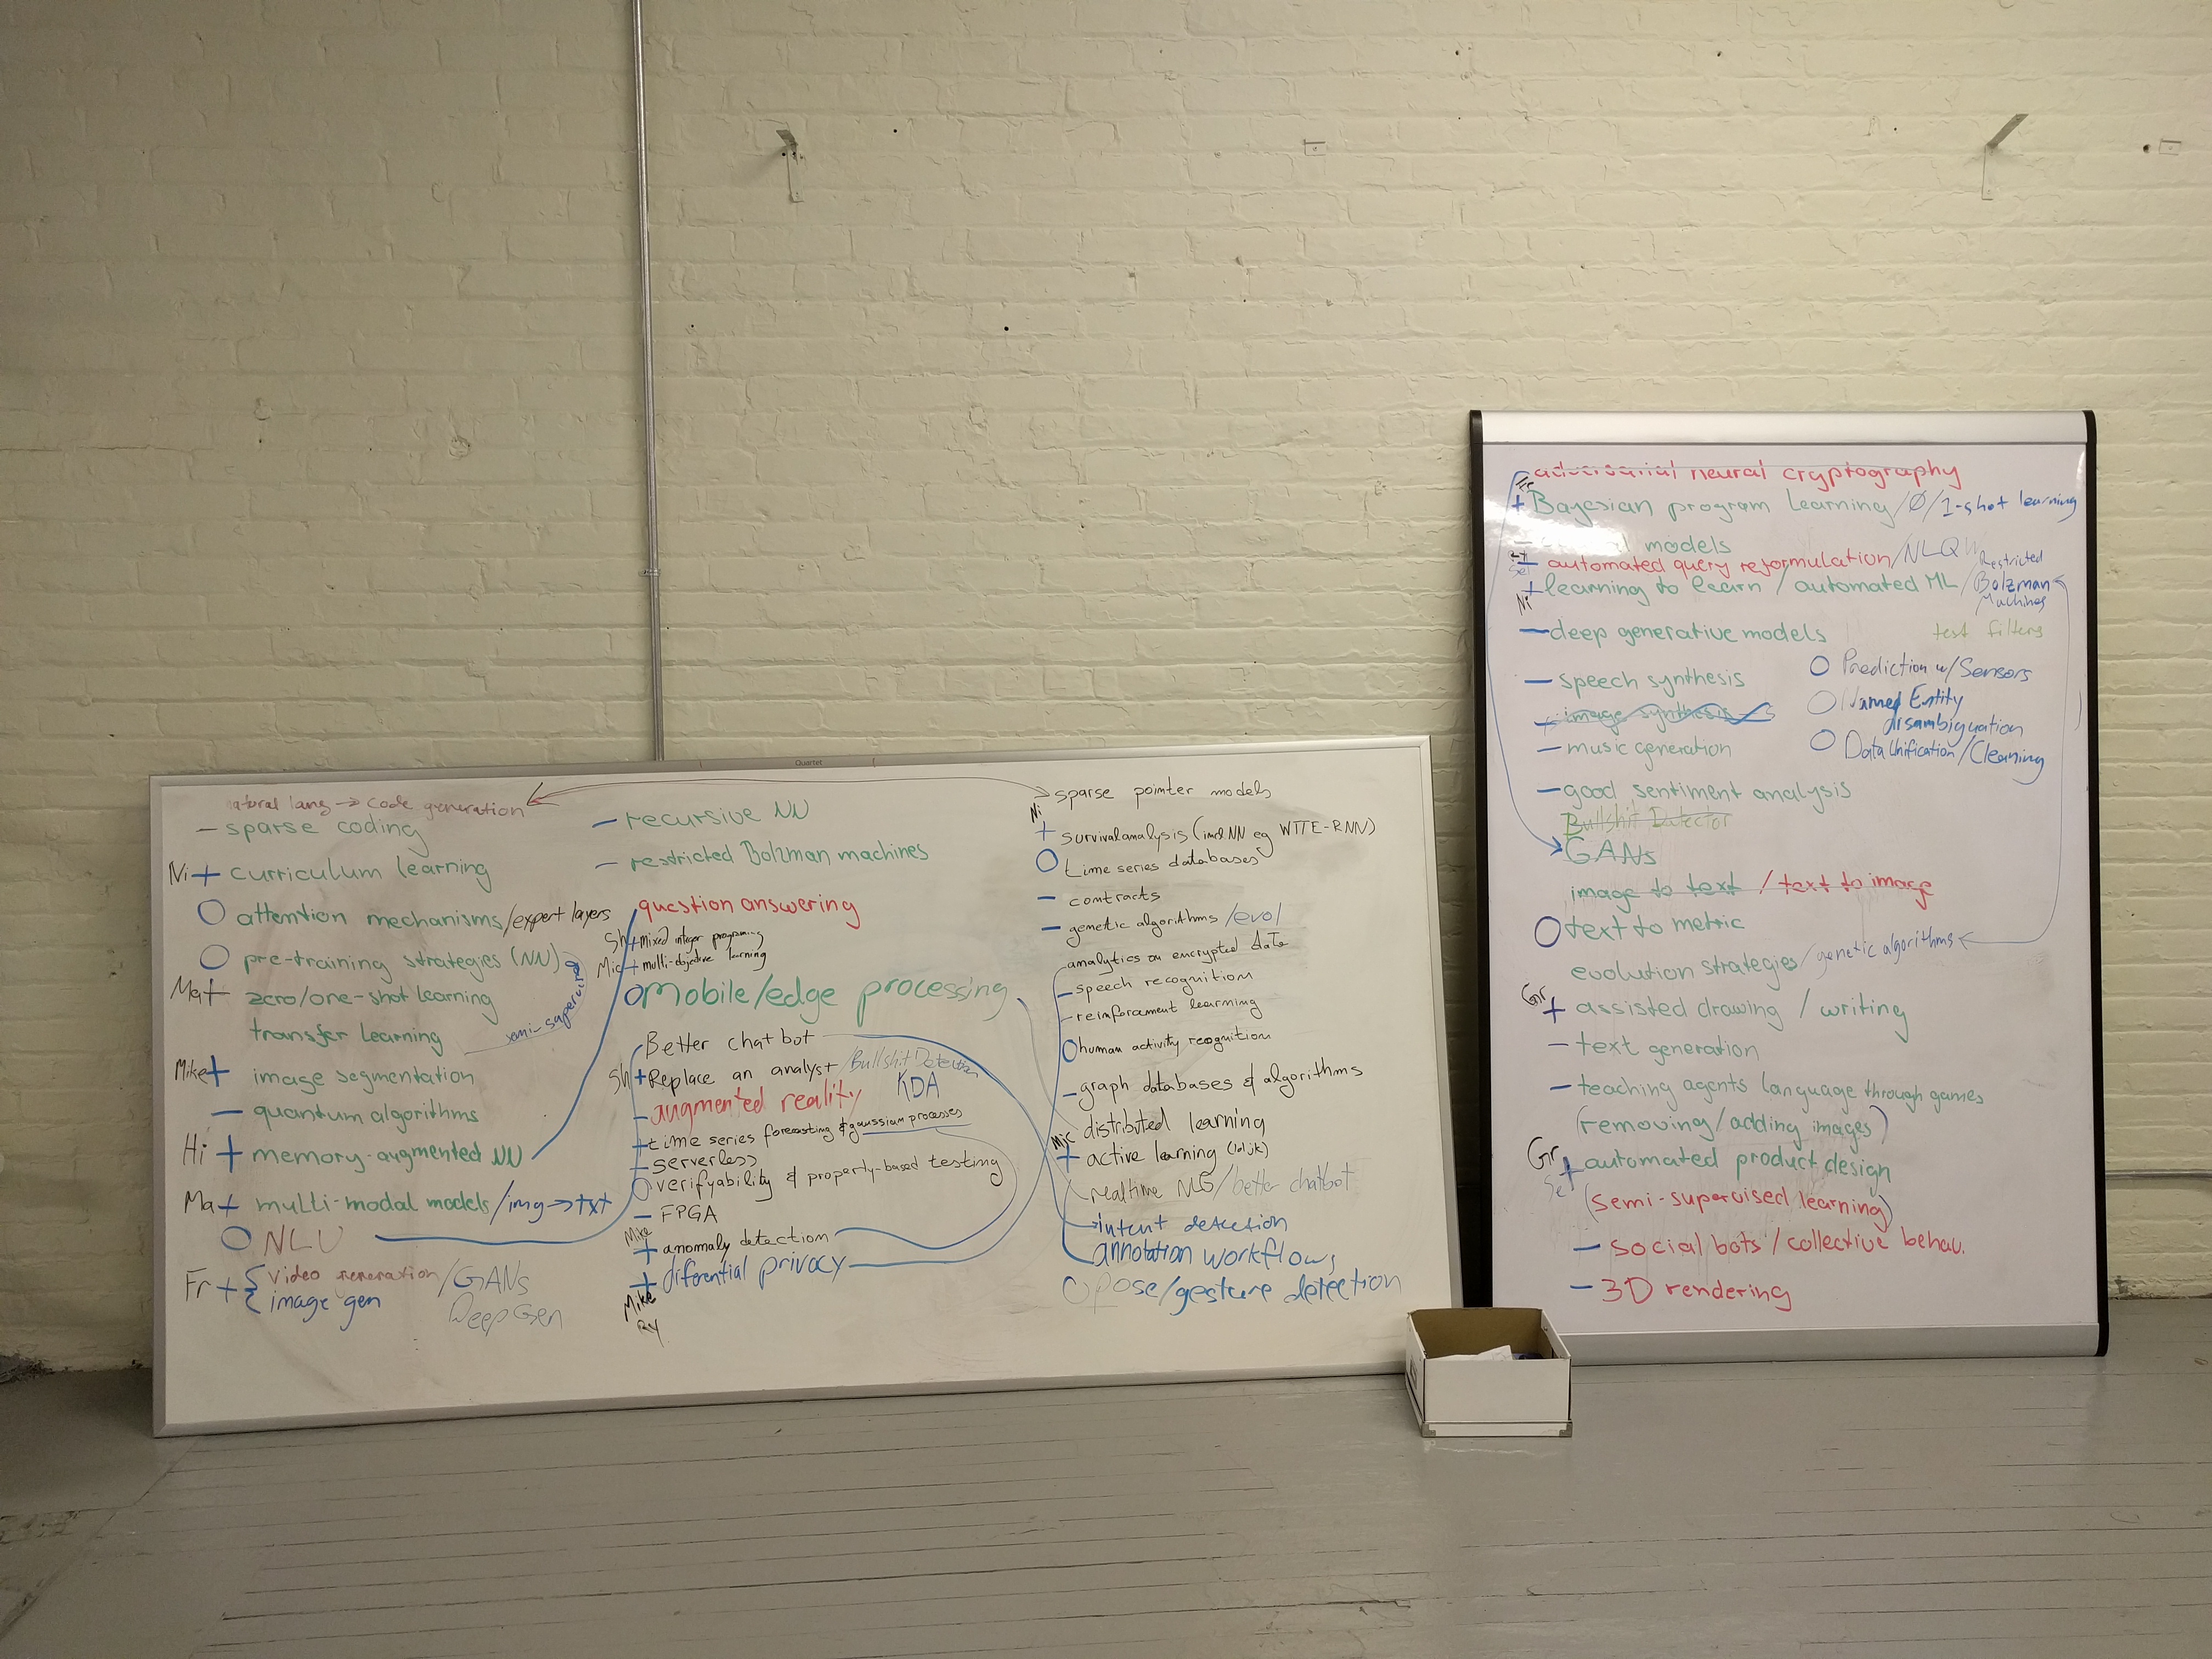 Quartet
natural lang → code generation
- sparse coding
Ni + curriculum learning
O attention mechanisms/expert layers
O pre-training strategies (NN)
Ma + zero/one-shot learning
transfer learning
semi-supervised
Mike + image segmentation
- quantum algorithms
Hi + memory-augmented NN
Ma + multi-modal models/img→txt
O NLU
Fr + { video generation/GANs
image gen
DeepGen
- recursive NN
- restricted Bolzman machines
question answering
Sh + Mixed integer programing
Mic + multi-objective learning
O Mobile/edge processing
Better chatbot
Sh + Replace an analyst/Bullshit Detection
KDA
- augmented reality
+ time series forecasting & gaussium processes
- serverless
O verifyability & property-based testing
- FPGA
Mike + anomaly detection
+ diferential privacy
Mike
Ry
sparse pointer models
Ni
+ survival analysis (incl. NN eg WTTE-RNN)
O time series databases
- contracts
- genetic algorithms/evol
analytics on encrypted data
- speech recognition
- reinforcament learning
O human activity recognition
- graph databases & algorithms
distributed learning
Mic + active learning (lol jk)
realtime NLG/better chatbot
intent detection
annotation workflows
O pose/gesture detection
adversarial neural cryptography
+ Bayesian program learning/Ø/1-shot learning
models
+ automated query reformulation/NLQ
Se
+ learning to learn / automated ML/Restricted Bolzman Machines
Ni
- deep generative models
test filters
- speech synthesis
O Prediction w/Sensors
image synthesis
O Named Entity
disambiguation
- music generation
O Data Unification/Cleaning
- good sentiment analysis
Bullshit Detector
GANs
image to text / text to image
O text to metric
evolution strategies/genetic algorithms
Gr + assisted drawing / writing
- text generation
- teaching agents language through games
(removing/adding images)
Gr + automated product design
Se
(semi-supervised learning)
- social bots/collective behav.
- 3D rendering